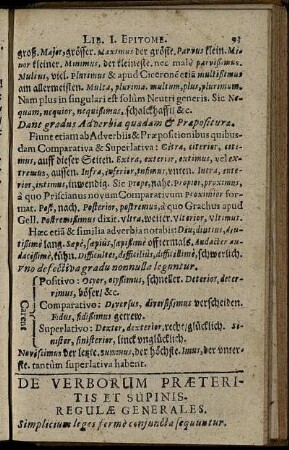 LIB. I. EPITOME. 93
groß. Major, grösser. Maximus der gröste. Parvus klein. Mi-
nor kleiner. Minimus, der kleineste, nec malè parvissimus.
Multus, viel. Plurimus & apud Ciceronē etiā multissimus
am allermeisten. Multa, plurima, multum, plus, plurimum.
Nam plus in singulari est solùm Neutri generis. Sic Ne-
quam, nequior, nequissimus, schalckhafft &c.
Dant gradus Adverbia quædam & Præpositura.
Fiunt etiam ab Adverbiis & Præpositionibus quibus-
dam Comparativa & Superlativa: Citra, citerior, citi-
mus, auff dieser Seiten. Extra, exterior, extimus, vel ex-
tremus, aussen. Infra, inferior, infimus, unten. Intra, inte-
rior, intimus, inwendig. Sic prope, nahe. Propior, proximus,
à quo Priscianus novum Comparativum Proximior for-
mat. Post, nach, Posterior, postremus, à quo Grachus apud
Gell. Postremissimus dixit. Ultra, weiter, ulterior, ultimus.
Hæc etiā & similia adverbia notabis: Diu, diutius, diu-
tissimè lang. Sæpè, sæpius, sæpissimè offtermals. Audacter au-
dacissimè, kühn. Difficulter, difficilius, difficillimè, schwerlich.
Uno defectiva gradu nonnulla leguntur.
Carent
Positivo: Ocyor, ocyssimus, schneller. Deterior, deter-
rimus, böser/ &c.
Comparativo: Diversus, diversissimus verscheiden.
Fidus, fidissimus getrew.
Superlativo: Dexter, dexterior, recht/ glücklich. Si-
nister, sinisterior, linck unglücklich.
Novissimus der letzte, summus, der höchste. Imus, der unter-
ste. tantùm superlativa habent.
DE VERBORUM PRÆTERI-
TIS ET SUPINIS.
REGULÆ GENERALES.
Simplicium leges fermè conjuncta sequuntur.